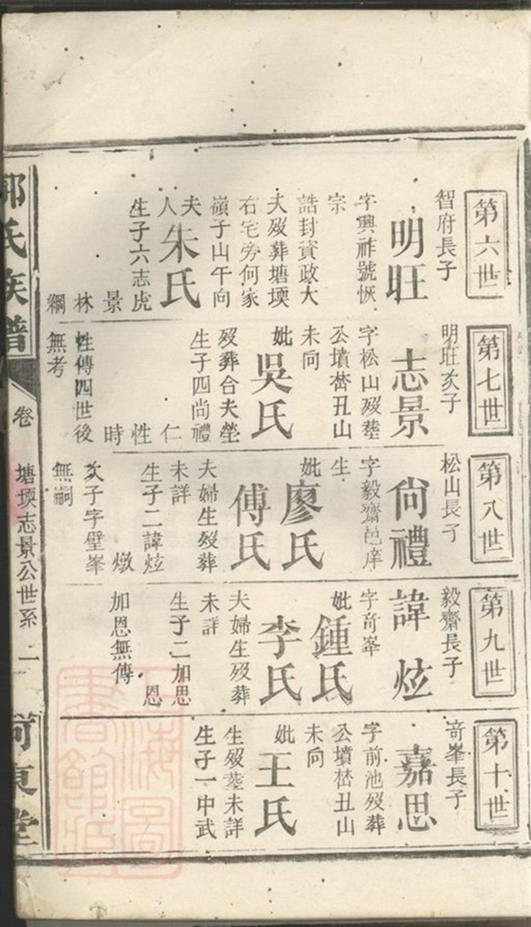 第六世
智府長子
明旺
字興祚號恢
宗
誥封資政大
夫歿葬塘堧
右宅旁何家
嶺子山午向
夫
人朱氏
生子六志虎
景
林
綱
第七世
明旺次子
志景
字松山歿葬
公墳嵆丑山
未向
妣吳氏
歿葬合夫塋
生子四尚禮
仁
性
時
性傳四世後
無考
第八世
松山長子
尙禮
字毅齋邑庠
生
妣廖氏
傅氏
夫婦生歿葬
未詳
生子二諱炫
燉
次子字璧峯
無嗣
第九世
毅齋長子
諱炫
字奇峯
妣鍾氏
李氏
夫婦生歿葬
未詳
生子二加思
恩
加恩無傳
第十世
奇峯長子
嘉思
字前池歿葬
公墳嵆丑山
未向
妣王氏
生歿葬未詳
生子一中武
氏族譜
卷
塘堧志景公世系
一
河東堂
上海圖書館藏